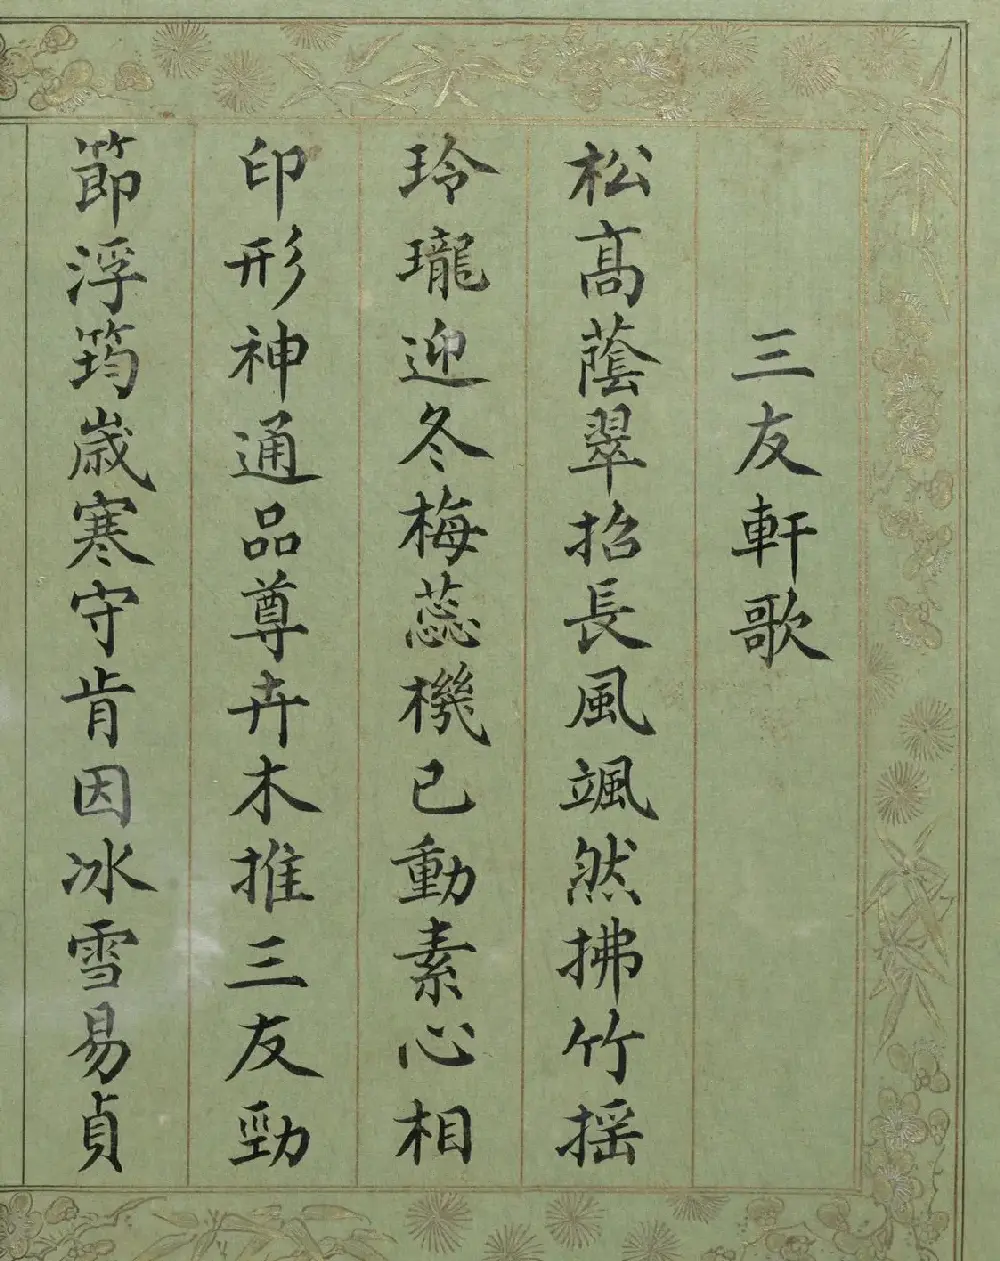 三友軒歌
松髙蔭翠招長風颯然拂竹揺
玲瓏迎冬梅蕊機已動素心相
印形神通品尊卉木推三友勁
節浮筠歳寒守肯因冰雪易貞